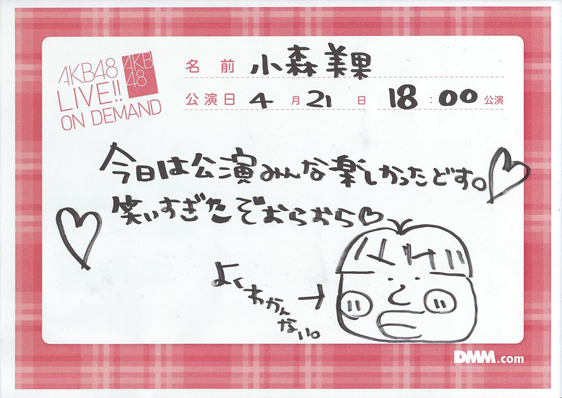 AKB48
LIVE!!
ON DEMAND
AKB
48
名前 小森美果
公演日 4月21日 18:00公演
今日は公演みんな楽しかったどす。
笑いすぎたぞおらおら♡
よく
わかんない。
DMM.com